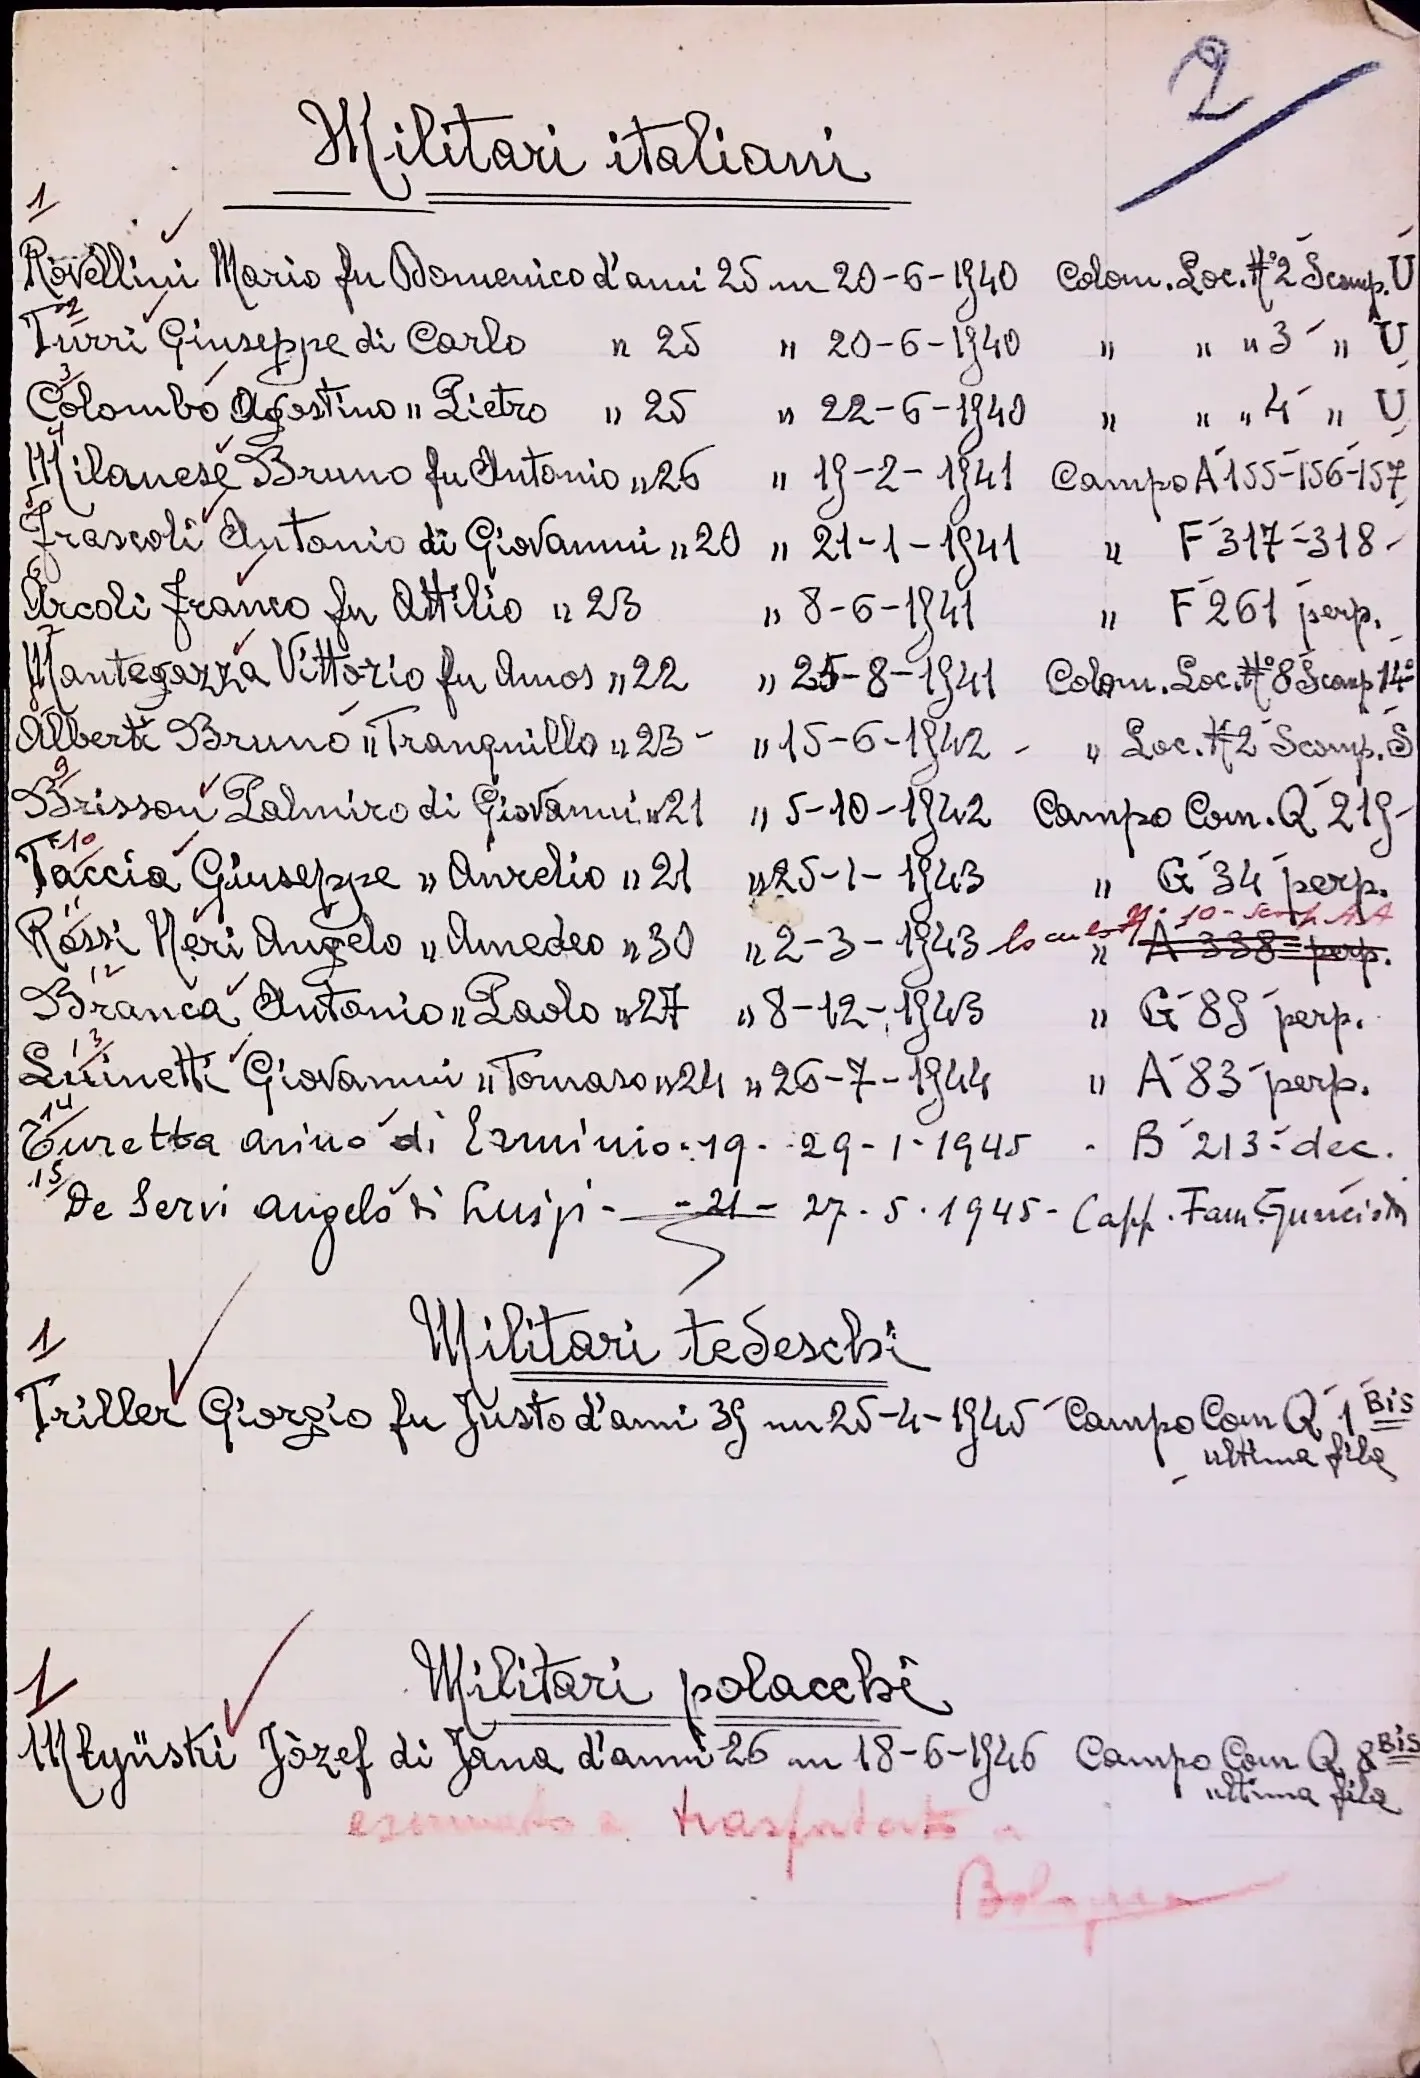 2
Militari italiani
1
Rovellini Mario fu Domenico d'anni 25 m 20-6-1940 Colom. Loc. N° 2 Scomp. U
2
Turri Giuseppe di Carlo " 25 " 20-6-1940 " " " 3 " U
3
Colombo Agostino " Pietro " 25 " 22-6-1940 " " " 4 " U
4
Milanese Bruno fu Antonio " 26 " 19-2-1941 Campo A 155-156-157
5
Frascoli Antonio di Giovanni " 20 " 21-1-1941 " F 317-318-
6
Arcoli Franco fu Attilio " 23 " 8-6-1941 " F 261 perp.
7
Mantegazza Vittorio fu Amos " 22 " 25-8-1941 Colom. Loc. N° 8 Scomp 14°
8
Alberti Bruno " Tranquillo " 23 - " 15-6-1942 - " Loc. N° 2 Scomp. S
9
Brisson Palmiro di Giovanni " 21 " 5-10-1942 Campo Com. Q 219-
10
Taccia Giuseppe " Aurelio " 21 " 25-1-1943 " G 34 perp.
11
N. 10 - Scomp. AA
Rossi Neri Angelo " Amedeo " 30 " 2-3-1943 " A 338 perp.
12
Branca Antonio " Paolo " 27 " 8-12-1943 " G 89 perp.
13
Luinetti Giovanni " Tomaso " 24 " 26-7-1944 " A 83 perp.
14
Turetta anino di Erminio - 19 - 29-1-1945 - B 213 - dec.
15
De Servi angelo di Luigi - 21 - 27.5.1945 - Capp. Fam.
Militari tedeschi
1
Triller Giorgio fu Justo d'anni 39 m 25-4-1945 Campo Com Q 1 Bis
ultima fila
Militari polacchi
1
Młyüski Jòzef di Jana d'anni 26 m 18-6-1946 Campo Com Q 8 Bis
ultima fila
esumato e trasportato a
Bologna